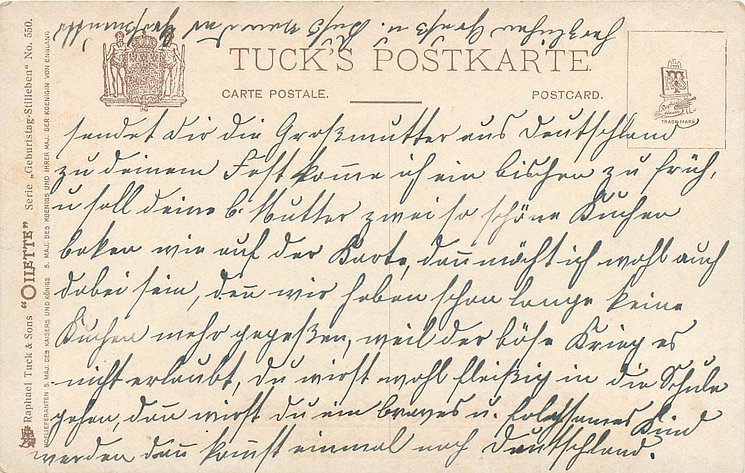 TUCK'S POSTKARTE.
CARTE POSTALE.
POSTCARD.
TRADE MARK
Raphael Tuck & Sons "OILETTE" Serie „Geburtstag-Stilleben" No. 550.
HOFLIEFERANTEN S. MAJ. DES KAISERS UND KÖNIGS S. MAJ. DES KOENIGS UND IHRER MAJ. DER KOENIGIN VON ENGLAND
sendet dir die Großmutter aus Deutschland
zu deinem Fest komme ich ein bischen zu früh,
u soll deine l. Mutter zwei so schöne Kuchen
baken wie auf der Karte, dan möcht ich wohl auch
dabei sein, den wir haben schon lange keine
Kuchen mehr gegeßen, weil der böse Krieg es
nicht erlaubt, du wirst wohl fleißig in die Schule
gehen, dan wirst du ein braves u. folgsames Kind
werden dan komst einmal nach Deutschland.